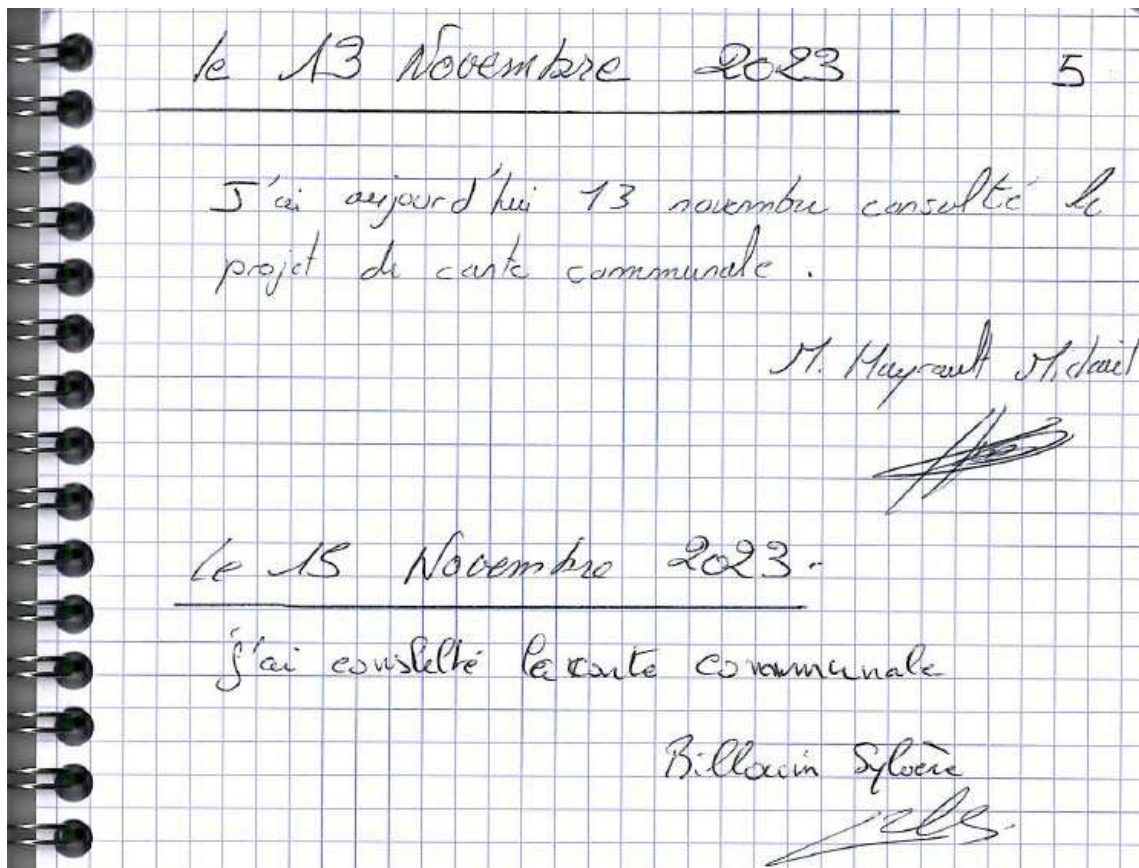 le 13 Novembre 2023 5
J'ai aujourd'hui 13 novembre consulté le
projet de carte communale.
M. Mayrault Mickaël
le 15 Novembre 2023.
j'ai consulté la carte communale
Billouin Sylvère